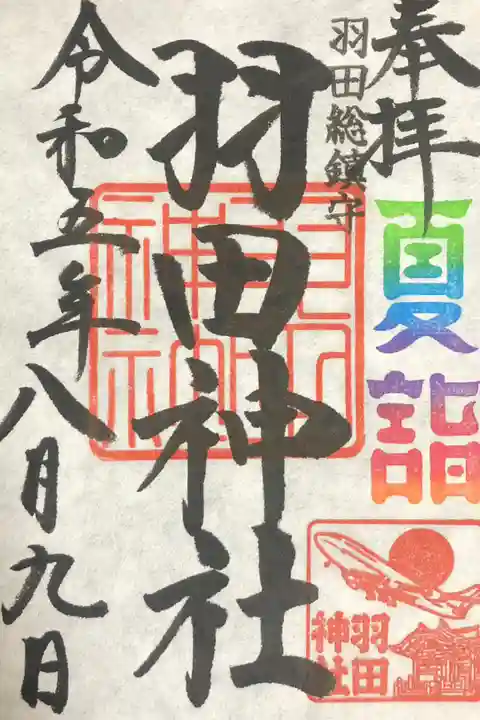 奉拝
夏詣
羽田総鎮守
羽田神社
羽田
神社
令和五年八月九日